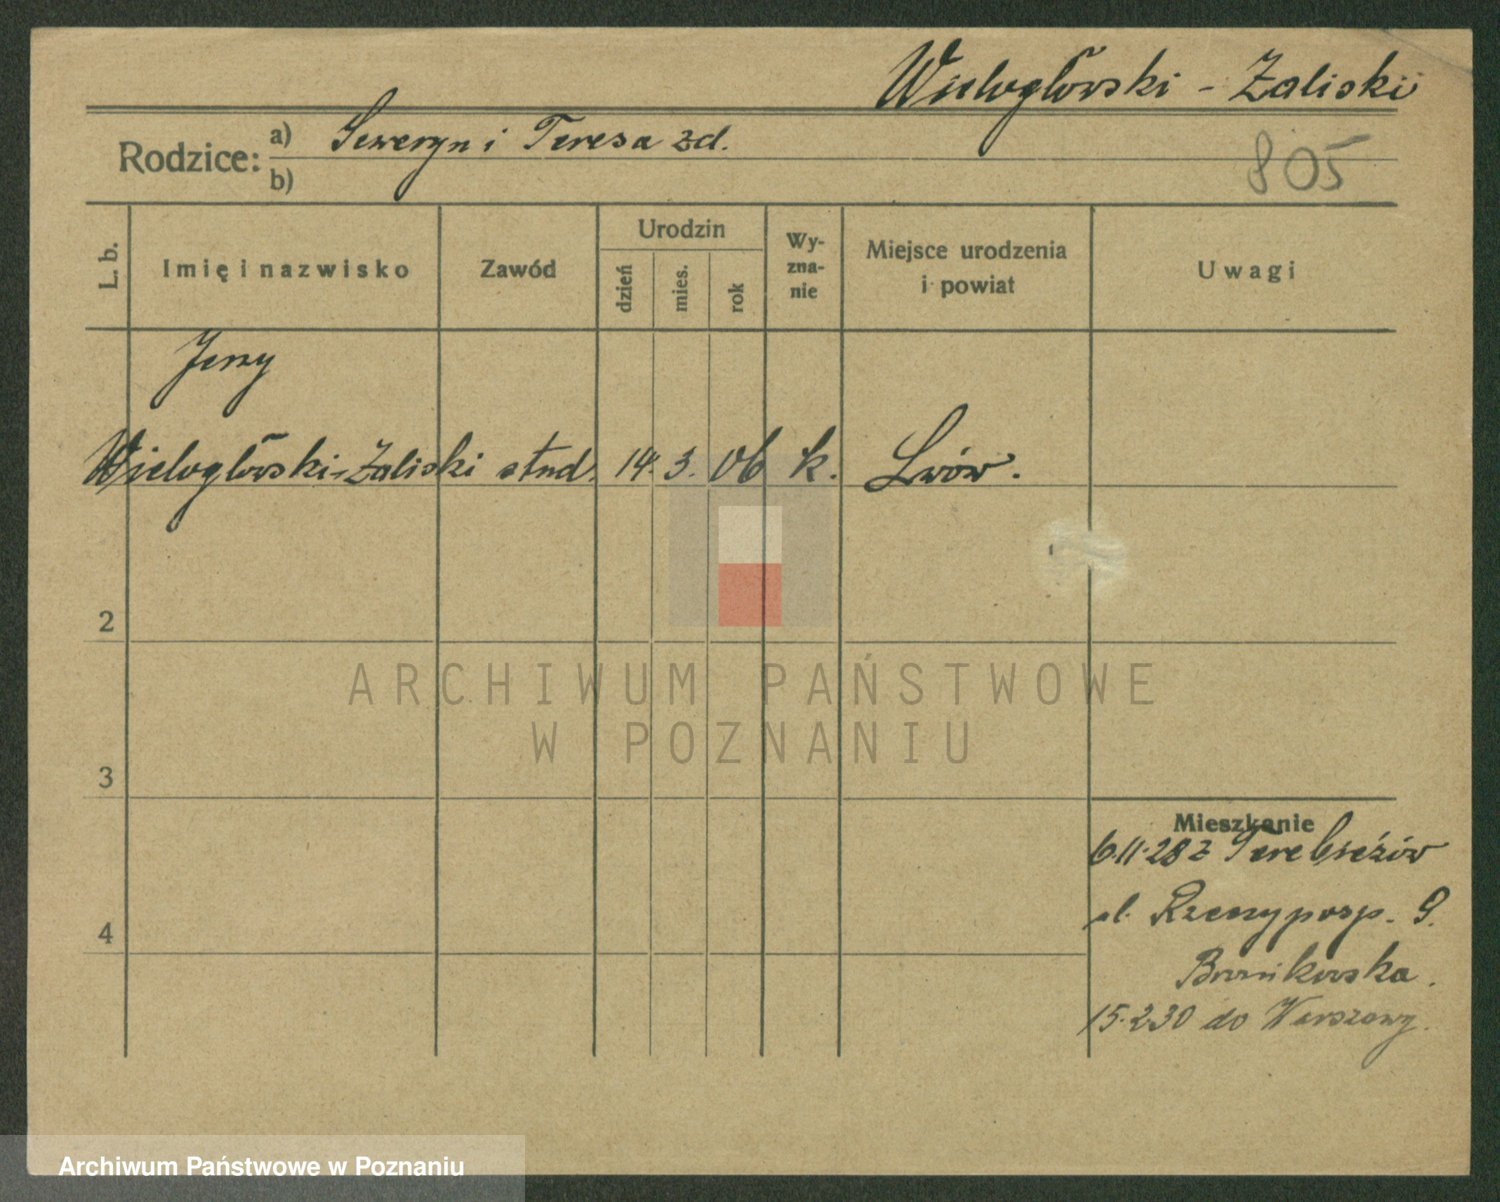 Wielogłowski - Zaliski
805
Rodzice: a) Seweryn i Teresa zd.
b)
L. b.
Imię i nazwisko
Zawód
Urodzin
dzień
mies.
rok
Wy-
zna-
nie
Miejsce urodzenia
i powiat
Uwagi
Jerzy
Wielogłowski-Zaliski stud. 14. 3. 06 k. Lwów.
2
3
4
Mieszkanie
6.11.28 z
ul. Rzeczyposp. 9.
Bronikowska.
15.2.30 do Warszawy.
ARCHIWUM PAŃSTWOWE
W POZNANIU
Archiwum Państwowe w Poznaniu